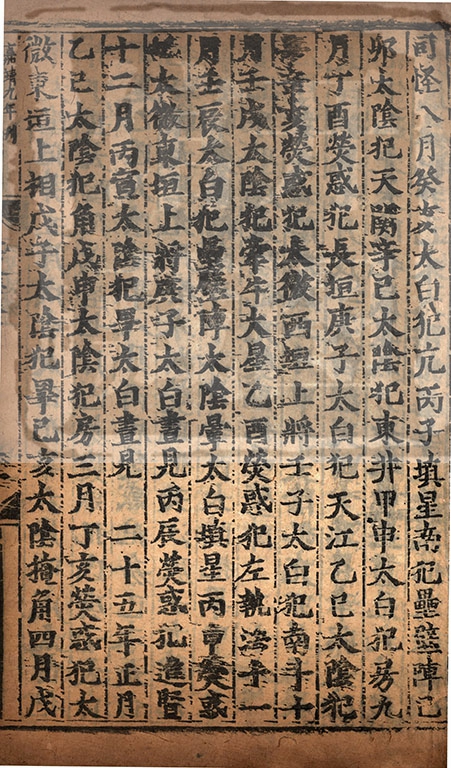 司怪八月癸亥太白犯亢丙子填星南犯壘壁陣己
卯太陰犯天關辛巳太陰犯東井甲申太白犯房九
月丁酉熒惑犯長垣庚子太白犯天江乙巳太陰犯
畢辛亥熒惑犯太微西垣上將壬子太白犯南斗十
月壬戌太陰犯牽牛大星乙酉熒惑犯左執法十一
月壬辰太白犯壘壁陣太陰暈太白填星丙申熒惑
犯太微東垣上將庚子太白晝見丙辰熒惑犯進賢
十二月丙寅太陰犯畢太白晝見　二十五年正月
乙巳太陰犯角戊申太陰犯房三月丁亥熒惑犯太
微東垣上相戊子太陰犯畢己亥太陰掩角四月戊
嘉靖九年